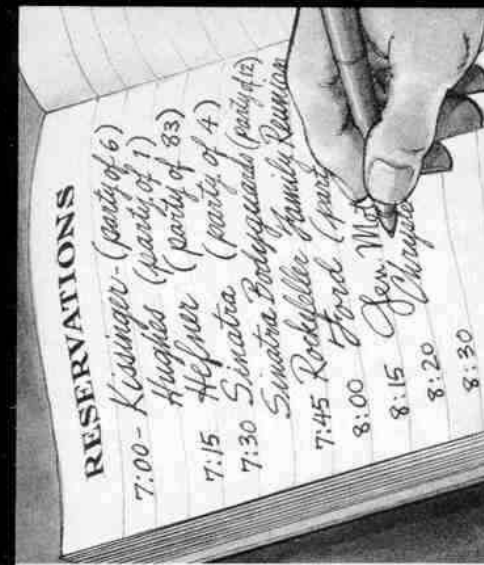 RESERVATIONS
7:00- Kissinger-(party of 6)
Hughes (party of 1)
7:15 Hefner (party of 83)
7:30 Sinatra (party of 4)
Sinatra Bodyguards (party of 12)
7:45 Rockefeller Family Reunion
8:00 Ford (part
8:15 Gen. Mot
8:20 Chrysle
8:30